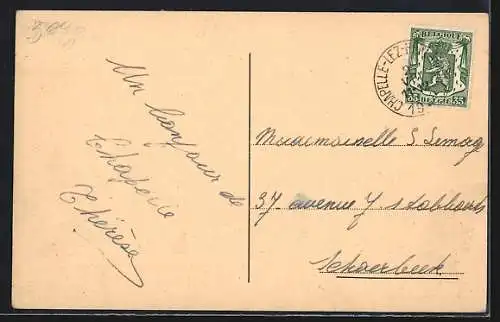 Un bonjour de
Chapelle
Thérèse
BELGIQUE
35 BELGIE 35
CHAPELLE-LEZ-
Mademoiselle S.
37 avenue J
Schaerbeek